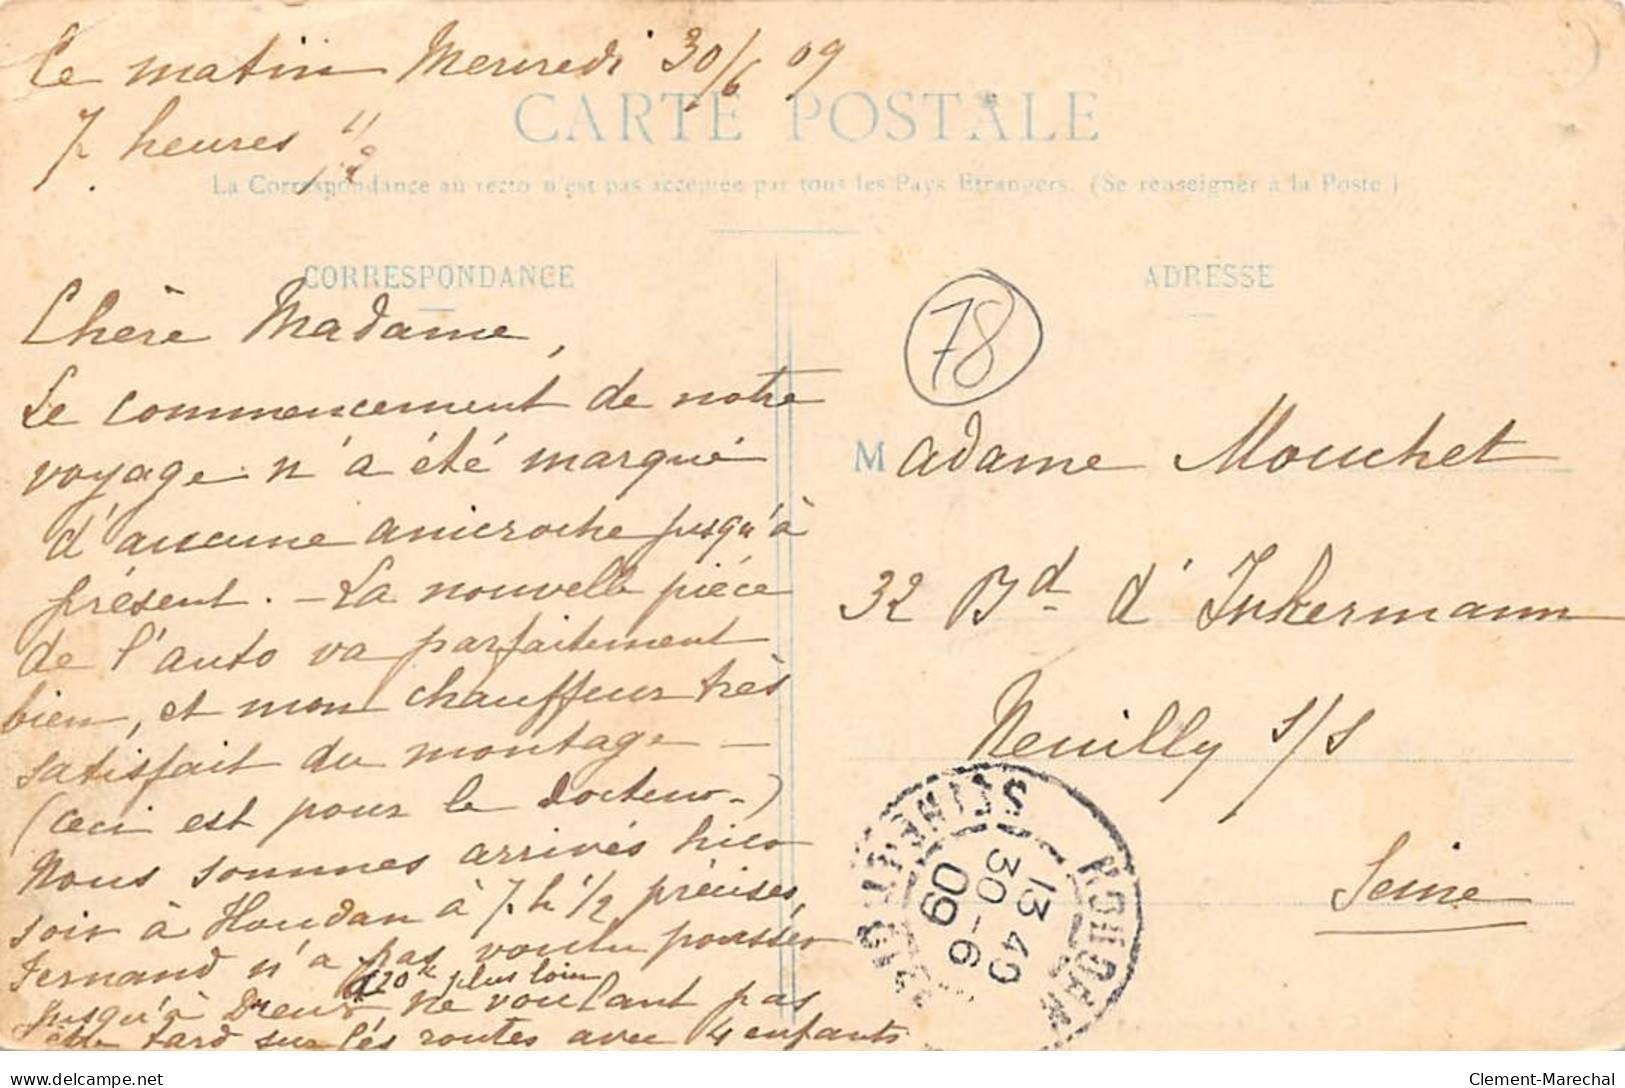 Ce matin Mercredi 30/6 09
7 heures 1/2
CARTE POSTALE
La Correspondance au recto n'est pas acceptée par tous les Pays Etrangers. (Se renseigner à la Poste)
CORRESPONDANCE
Chère Madame,
Le commencement de notre
voyage n'a été marqué
d'aucune anicroche jusqu'à
présent. - La nouvelle pièce
de l'auto va parfaitement
bien, et mon chauffeur très
satisfait du montage -
(ceci est pour le docteur -)
Nous sommes arrivés hier
soir à Houdan à 7 h 1/2 précises,
Fernand n'a pas voulu pousser
à 20 k plus loin
jusqu'à Dreux ne voulant pas
être tard sur les routes avec 4 enfants
ADRESSE
78
Madame Mouchet
32 Bd d'Inkermann
Neuilly s/s
Seine
HOUDAN
13 40
30 - 6
09
SEINE-ET-OISE
Clement-Marechal